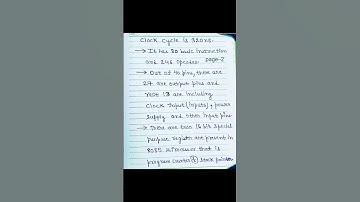 Clock Cycle is 320ns.
→ It has 80 basic instruction
and 246 opcodes. page-2
→ Out of 40 pins, there are
27 are output pins and
rest 13 are including
Clock Input (inputs), power
supply and other input pins
→ There are two 16 bit special
purpose register are present in
8085 that is
program counter & Stack pointer